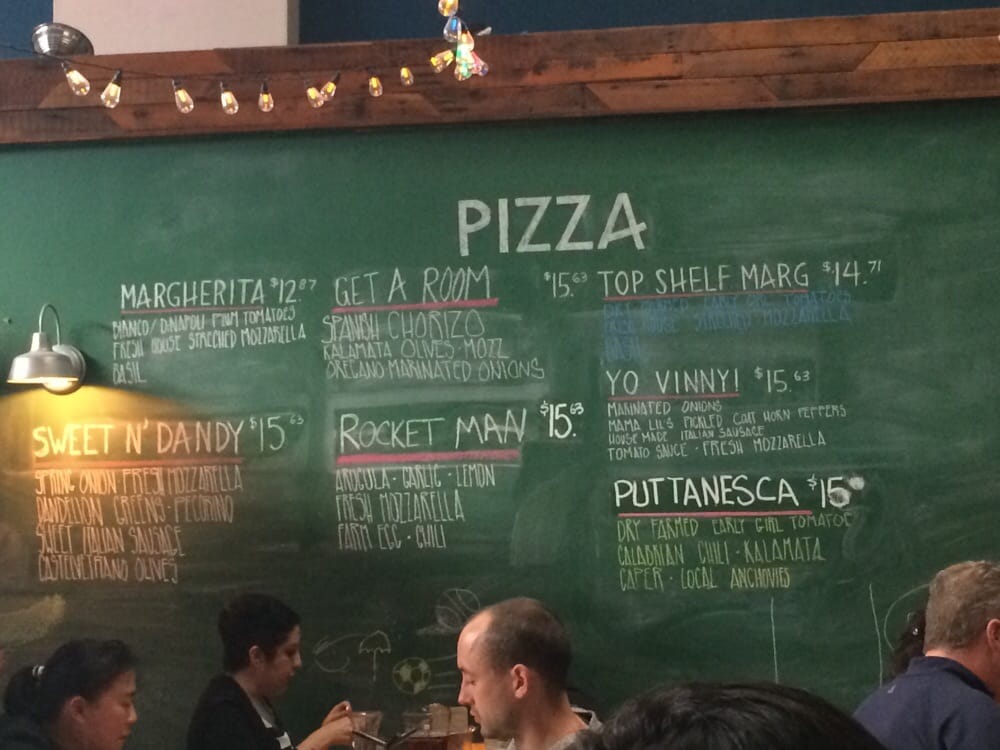 PIZZA
MARGHERITA $12.87
BIANCO/DINAPOLI PLUM TOMATOES
FRESH HOUSE STRECHED MOZZARELLA
BASIL
GET A ROOM $15.63
SPANISH CHORIZO
KALAMATA OLIVES · MOZZ
OREGANO MARINATED ONIONS
TOP SHELF MARG $14.71
DRY FARMED EARLY GIRL TOMATOES
FRESH HOUSE STRECHED MOZZARELLA
BASIL
YO VINNY! $15.63
MARINATED ONIONS
MAMA LIL'S PICKLED GOAT HORN PEPPERS
HOUSE MADE ITALIAN SAUSAGE
TOMATO SAUCE · FRESH MOZZARELLA
SWEET N' DANDY $15.63
SPRING ONION FRESH MOZZARELLA
DANDELION GREENS · PECORINO
SWEET ITALIAN SAUSAGE
CASTELVETRANO OLIVES
ROCKET MAN $15.63
ARUGULA · GARLIC · LEMON
FRESH MOZZARELLA
FARM EGG · CHILI
PUTTANESCA $15
DRY FARMED EARLY GIRL TOMATOE
CALABRIAN CHILI · KALAMATA
CAPER · LOCAL ANCHOVIES